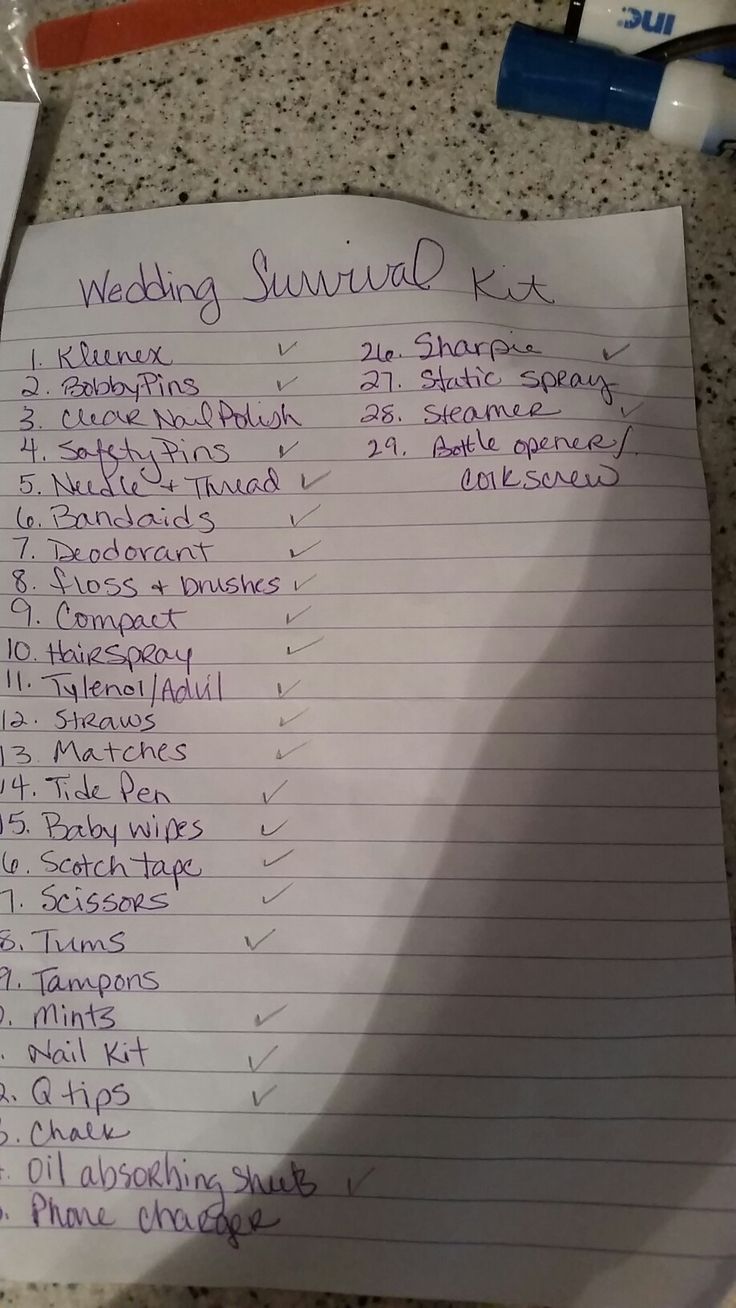 INC.
Wedding Survival Kit
1. Kleenex ✓
2. Bobby Pins ✓
3. Clear Nail Polish
4. Safety Pins ✓
5. Needle + Thread ✓
6. Bandaids ✓
7. Deodorant ✓
8. floss + brushes ✓
9. Compact ✓
10. Hairspray ✓
11. Tylenol/Advil ✓
12. Straws ✓
13. Matches ✓
14. Tide Pen ✓
15. Baby wipes ✓
6. Scotch tape ✓
7. Scissors ✓
8. Tums ✓
9. Tampons
0. Mints ✓
. Nail Kit ✓
2. Q tips ✓
3. Chalk
. Oil absorbing sheets ✓
. Phone charger
26. Sharpie ✓
27. Static spray
28. Steamer ✓
29. Bottle opener/
corkscrew